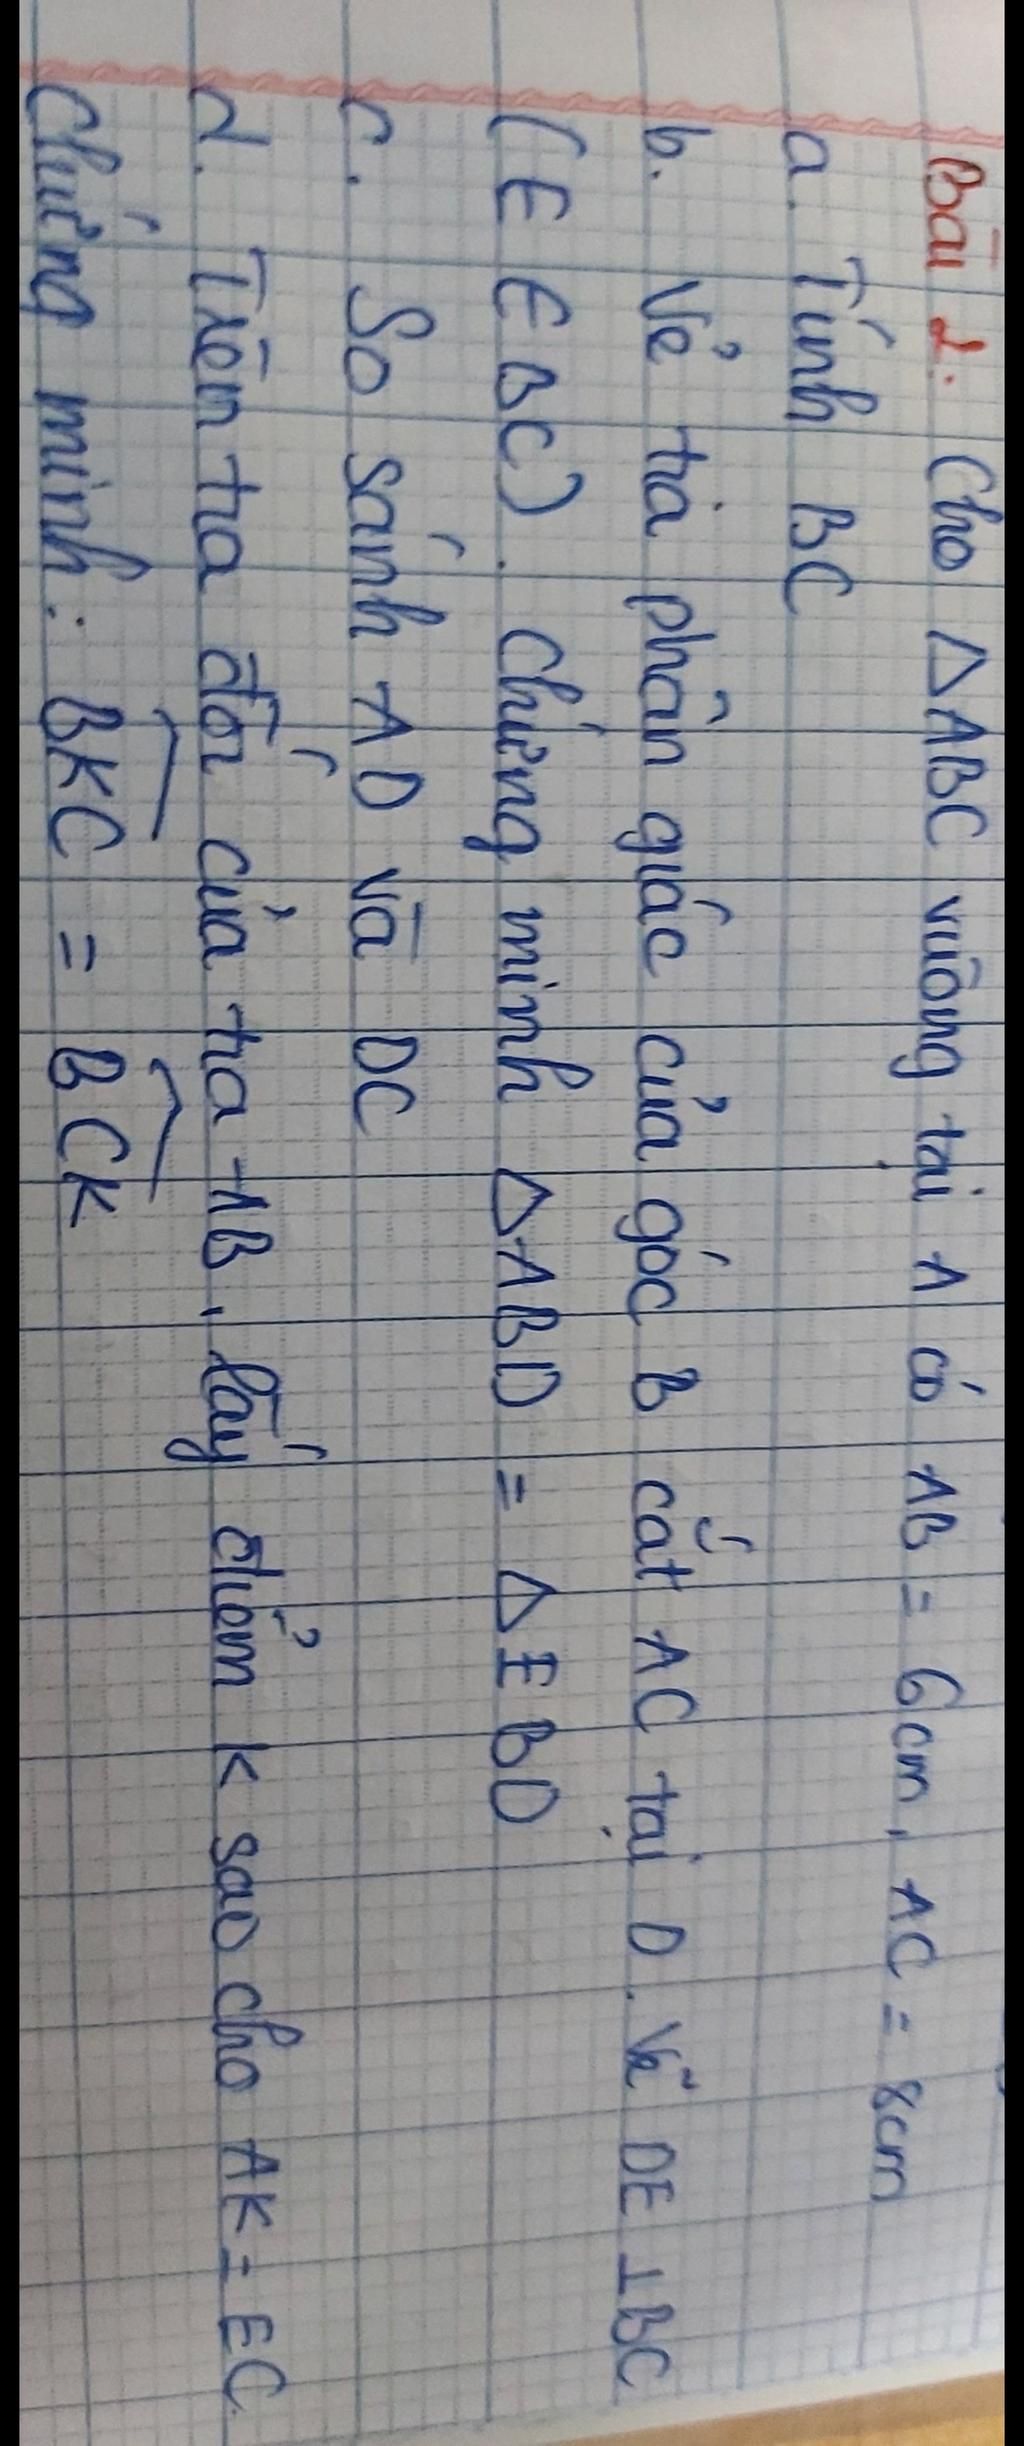 Bài 2. Cho △ABC vuông tại A có AB = 6cm, AC = 8cm
a. Tính BC
b. Vẽ tia phân giác của góc B cắt AC tại D. Vẽ DE ⊥ BC
(E ∈ BC). Chứng minh △ABD = △EBD
c. So sánh AD và DC
d. Trên tia đối của tia AB, lấy điểm K sao cho AK = EC
Chứng minh: \widehat{BKC} = \widehat{BCK}